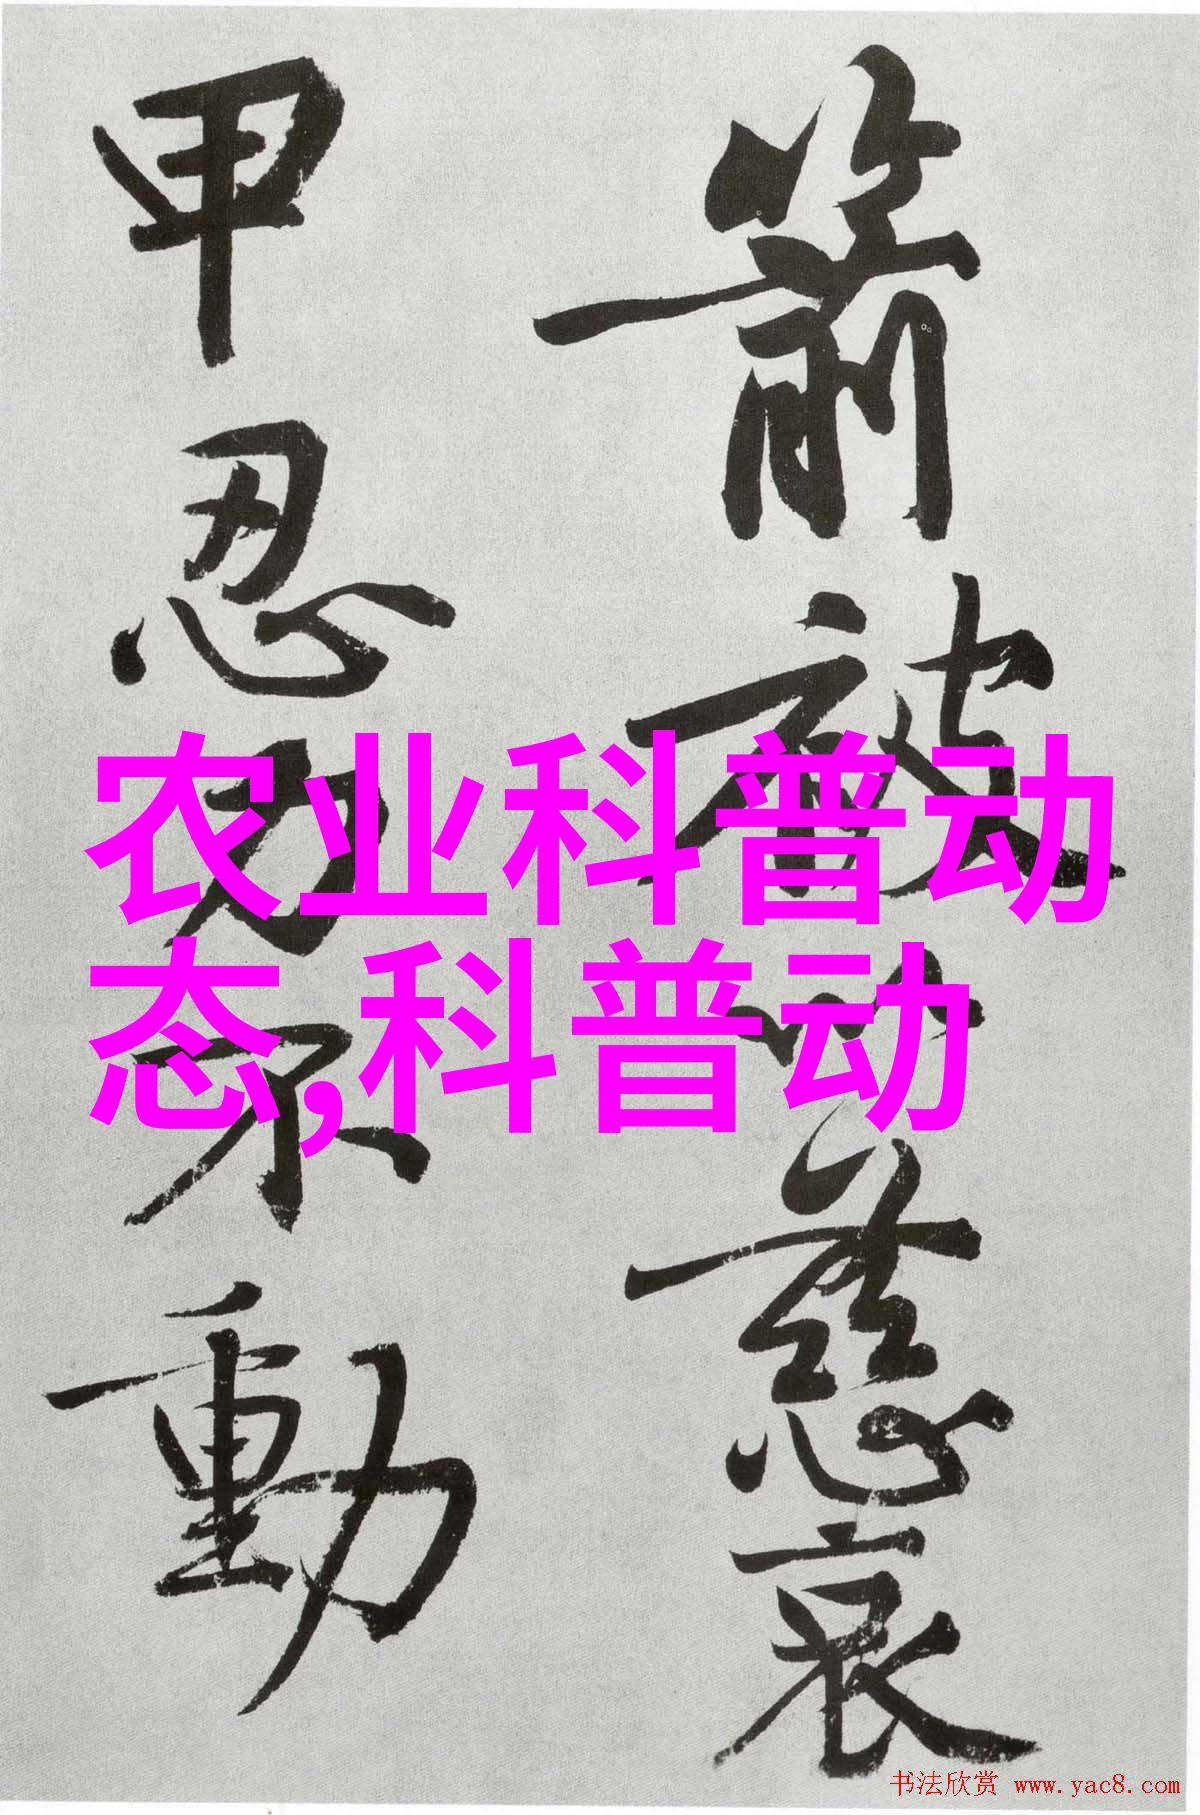 箭被以慈哀
甲忍力不動
农业科普动
态,科普动
书法欣赏 www.yac8.com